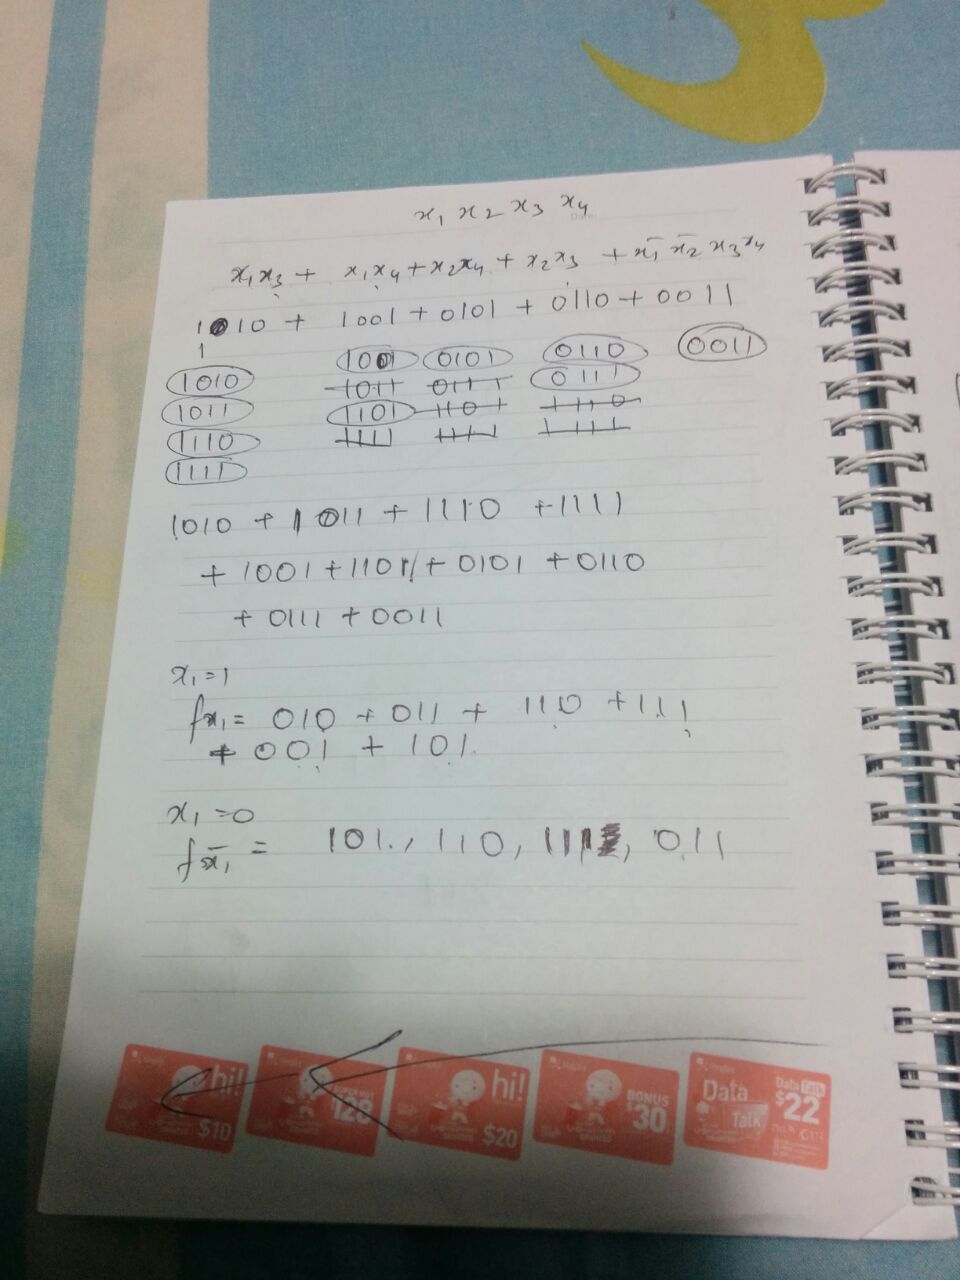 x₁ x₂ x₃ x₄
x₁x₃ + x₁x₄ + x₂x₄ + x₂x₃ + x̄₁ x̄₂ x₃x₄
1010 + 1001 + 0101 + 0110 + 0011
1
1001 0101 0110 0011
1010 1011 0111 0111
1011 1101 1101 1110
1110 1111 1111 1111
1111
1010 + 1011 + 1110 + 1111
+ 1001 + 1101 + 0101 + 0110
+ 0111 + 0011
x₁=1
fx₁= 010 + 011 + 110 + 111
+ 001 + 101.
x₁=0
fx̄₁ = 101., 110, 111, 011
hi! $10
128
hi! $20
BONUS $30
Data Talk Data Talk $22